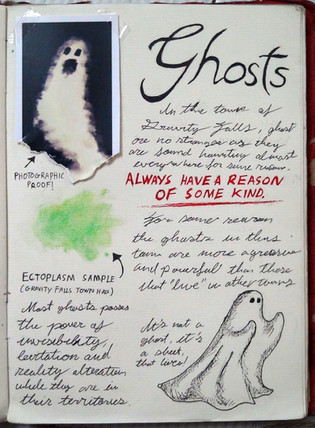 Ghosts
In the town of
Gravity Falls, ghost
are no strangers as they
are found haunting almost
everywhere for some reason.
ALWAYS HAVE A REASON
OF SOME KIND.
PHOTOGRAPHIC
PROOF!
For some reason
the ghosts in this
town are more agressive
and powerful than those
that "live" in other towns
ECTOPLASM SAMPLE
(GRAVITY FALLS TOWN HALL)
Most ghosts posses
the power of
invisibility,
levitation and
reality alteration
while they are in
their territories.
It's not a
ghost, it's
a sheet,
that lives!